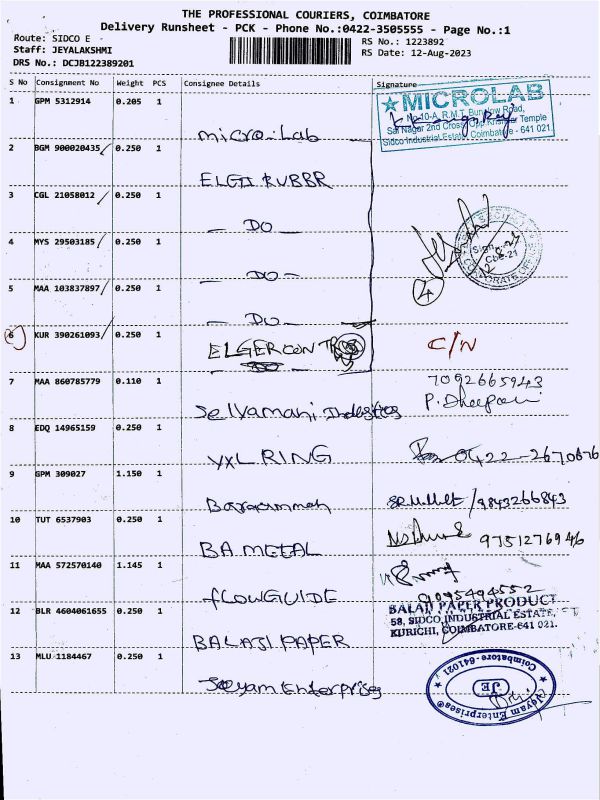 THE PROFESSIONAL COURIERS, COIMBATORE
Delivery Runsheet - PCK - Phone No.:0422-3505555 - Page No.:1
Route: SIDCO E -
Staff: JEYALAKSHMI
DRS No.: DCJB122389201
RS No.: 1223892
RS Date: 12-Aug-2023
S No Consignment No Weight PCS Consignee Details Signature
1 GPM 5312914 0.205 1 micro-Lab
MICROLAB
No.10-A, R.M.T. Bungalow Road,
Sai Nagar 2nd Cross, Opp. Temple
Sidco Industrial Estate, Coimbatore - 641 021.
2 BGM 900020435 0.250 1 ELGI RUBBR
3 CGL 21058012 0.250 1 - DO -
4 MYS 29503185 0.250 1 - DO -
Cbe-21
4
5 MAA 103837897 0.250 1 - DO -
6 KUR 390261093 0.250 1 ELGERCON C/N
7 MAA 860785779 0.110 1 Selvamani Industries 7092665943
8 EDQ 14965159 0.250 1 VXL RING 0422-2670676
9 GPM 309027 1.150 1 /9843266843
10 TUT 6537903 0.250 1 BA METAL
11 MAA 572570140 1.145 1 FLOWGUIDE 9095494552
12 BLR 4604061655 0.250 1 BALAJI PAPER
BALAJI PAPER PRODUCT
58, SIDCO INDUSTRIAL ESTATE,
KURICHI, COIMBATORE-641 021.
13 MLU 1184467 0.250 1 Jeeyam Enterprises
Jeyam Enterprises
JE
Coimbatore-641021